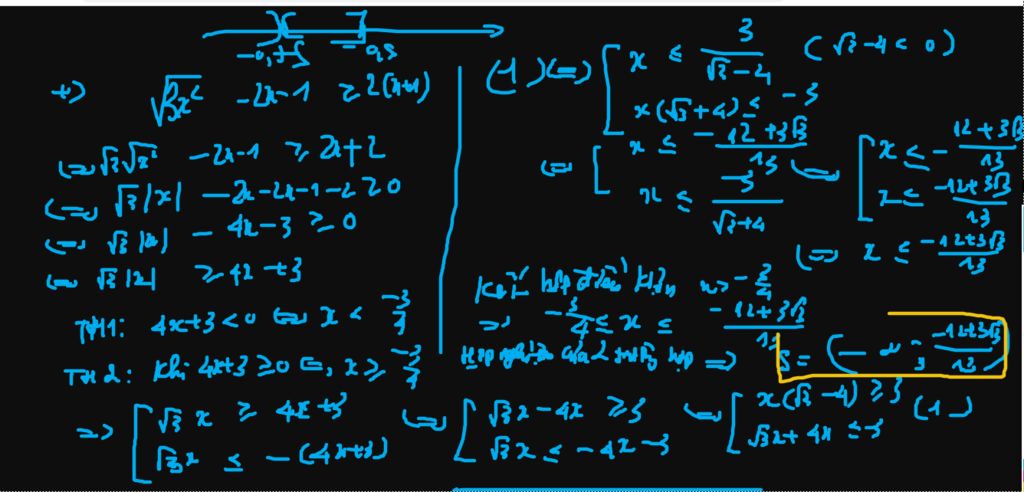 +) √3x² - 2x - 1 ≥ 2(x+1)
⇔ √3√x² - 2x - 1 ≥ 2x + 2
⇔ √3|x| - 2x - 2x - 1 - 2 ≥ 0
⇔ √3|x| - 4x - 3 ≥ 0
⇔ √3|x| ≥ 4x + 3
TH1: 4x+3 < 0 ⇔ x < -3/4
TH2: Khi 4x+3 ≥ 0 ⇔ x ≥ -3/4
⇒ [ √3x ≥ 4x+3 ⇔ [ √3x - 4x ≥ 3 ⇔ [ x(√3-4) ≥ 3 (1)
√3x ≤ -(4x+3) √3x ≤ -4x - 3 √3x + 4x ≤ -3
(1) ⇔ [ x ≤ 3/(√3-4) (√3-4 < 0)
x(√3+4) ≤ -3
⇔ [ x ≤ -(12+3√3)/13 ⇔ [ x ≤ -(12+3√3)/13
x ≤ -3/(√3+4) x ≤ (-12+3√3)/13
⇔ x ≤ (-12+3√3)/13
Kết hợp điều kiện x > -3/4
⇒ -3/4 ≤ x ≤ (-12+3√3)/13
Hợp nghiệm của 2 trường hợp ⇒ S = (-∞; (-12+3√3)/13)